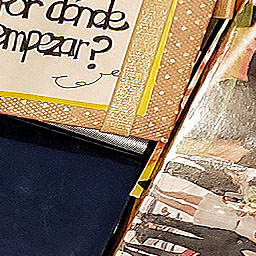 Por dónde
empezar?